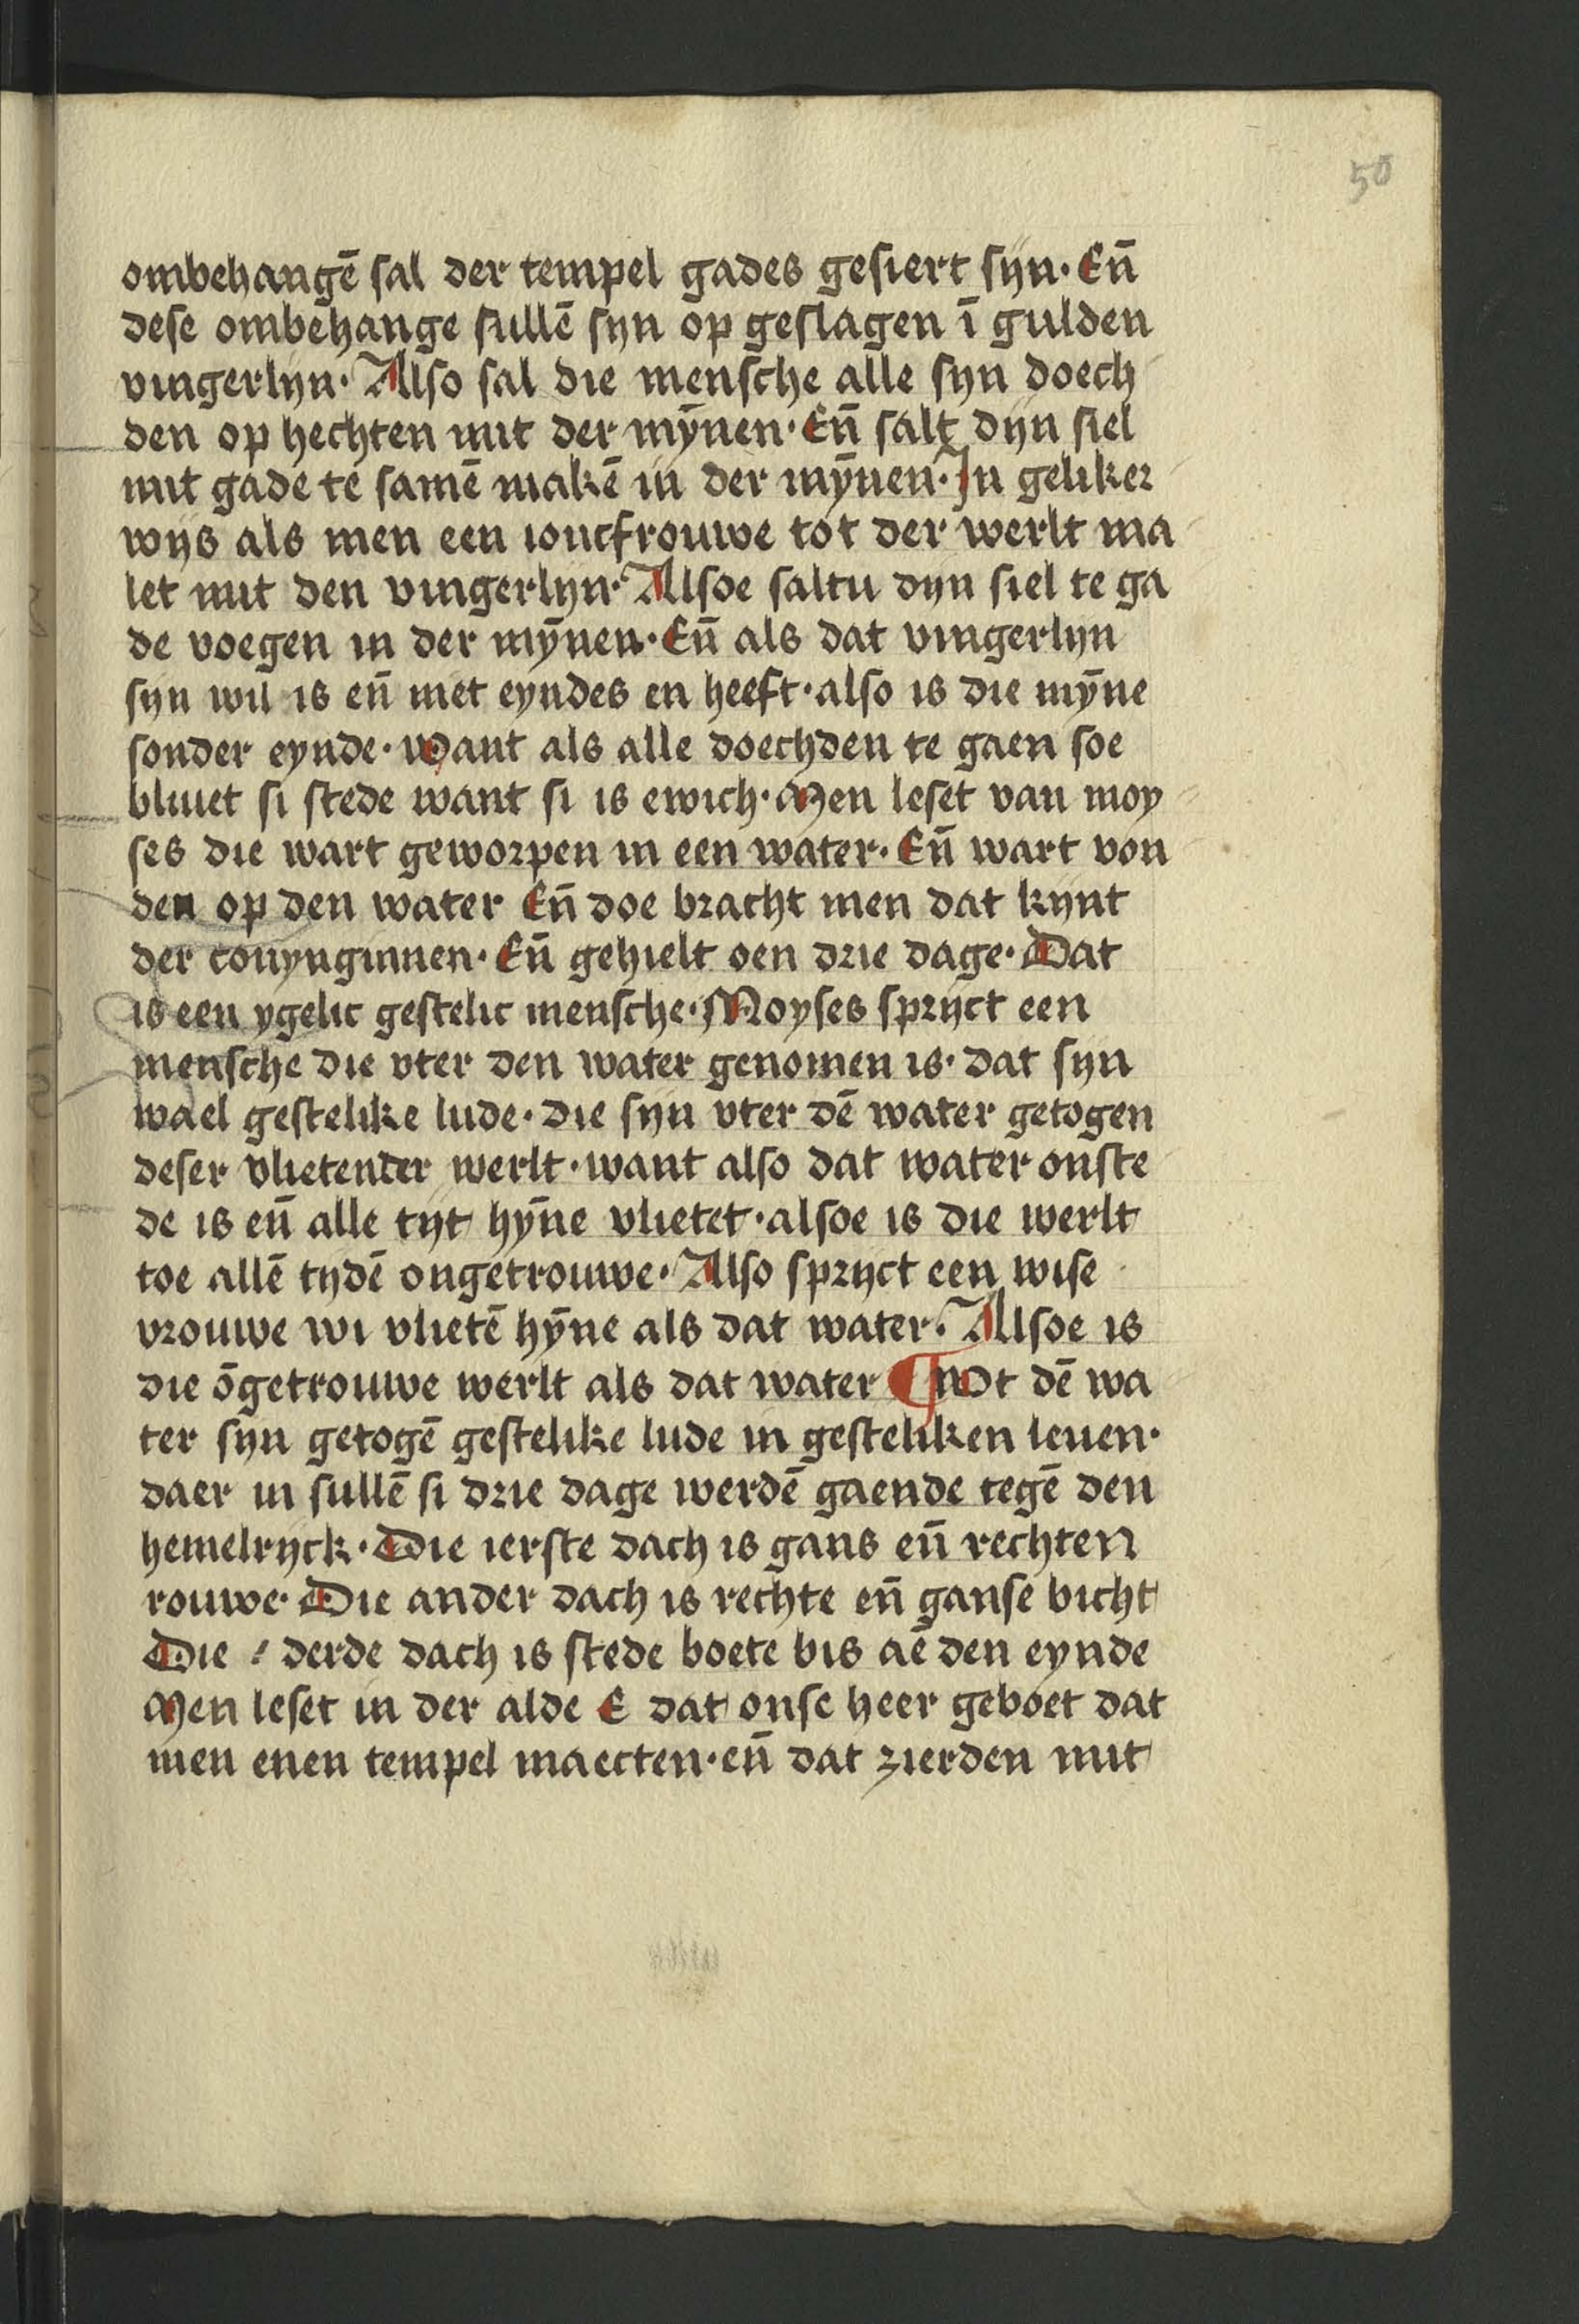 50
ombehangē sal der tempel gades gesiert sijn· En̄
dese ombehange sullē syn op geslagen ī gulden
vingerlijn· Also sal die mensche alle syn doech
den op hechten mit der mȳnen· En̄ salt dijn siel
mit gade te samē makē in der mȳnen· In geliker
wijs als men een ioncfrouwe tot der werlt ma
let mit den vingerlijn· Alsoe saltu dyn siel te ga
de voegen in der mȳnen· En̄ als dat vingerlijn
sijn wil is en̄ niet eyndes en heeft· also is die mȳne
sonder eynde· Want als alle doechden te gaen soe
bliuet si stede want si is ewich· Men leset van moy
ses die wart geworpen in een water· En̄ wart von
den op den water En̄ doe bracht men dat kijnt
der conynginnen· En̄ gehielt oen drie dage· Dat
is een ygelic gestelic mensche· Moyses sprijct een
mensche die vter den water genomen is· dat sijn
wael gestelike lude· die sijn vter dē water getogen
deser vlietender werlt· want also dat water onste
de is en̄ alle tijt hȳne vlietet· alsoe is die werlt
toe allē tijdē ongetrouwe· Also sprijct een wise
vrouwe wi vlietē hȳne als dat water· Alsoe is
die ōgetrouwe werlt als dat water ¶ Wt dē wa
ter syn getogē gestelike lude in gesteliken leuen·
daer in sullē si drie dage werdē gaende tegē den
hemelrijck· Die ierste dach is gans en̄ rechten
rouwe· Die ander dach is rechte en̄ ganse bicht
Die derde dach is stede boete bis aē den eynde
Men leset in der alde E dat onse heer geboet dat
men enen tempel maecten· en̄ dat zierden mit